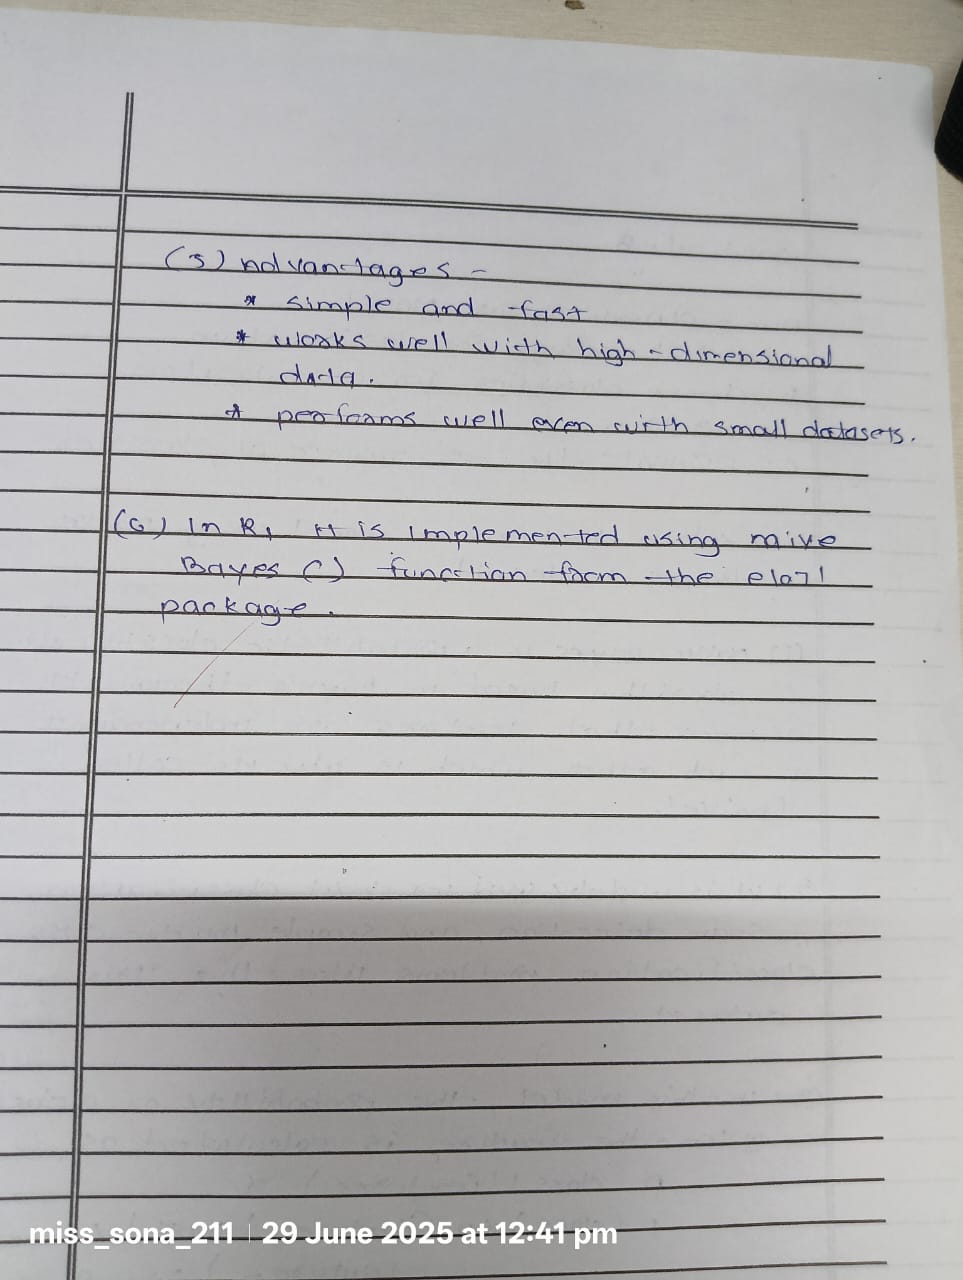 (5) Advantages -
* simple and fast
* works well with high-dimensional
data.
* performs well even with small datasets.
(6) In R, it is implemented using naive
Bayes () function from the e1071
package.
miss_sona_211 | 29 June 2025 at 12:41 pm